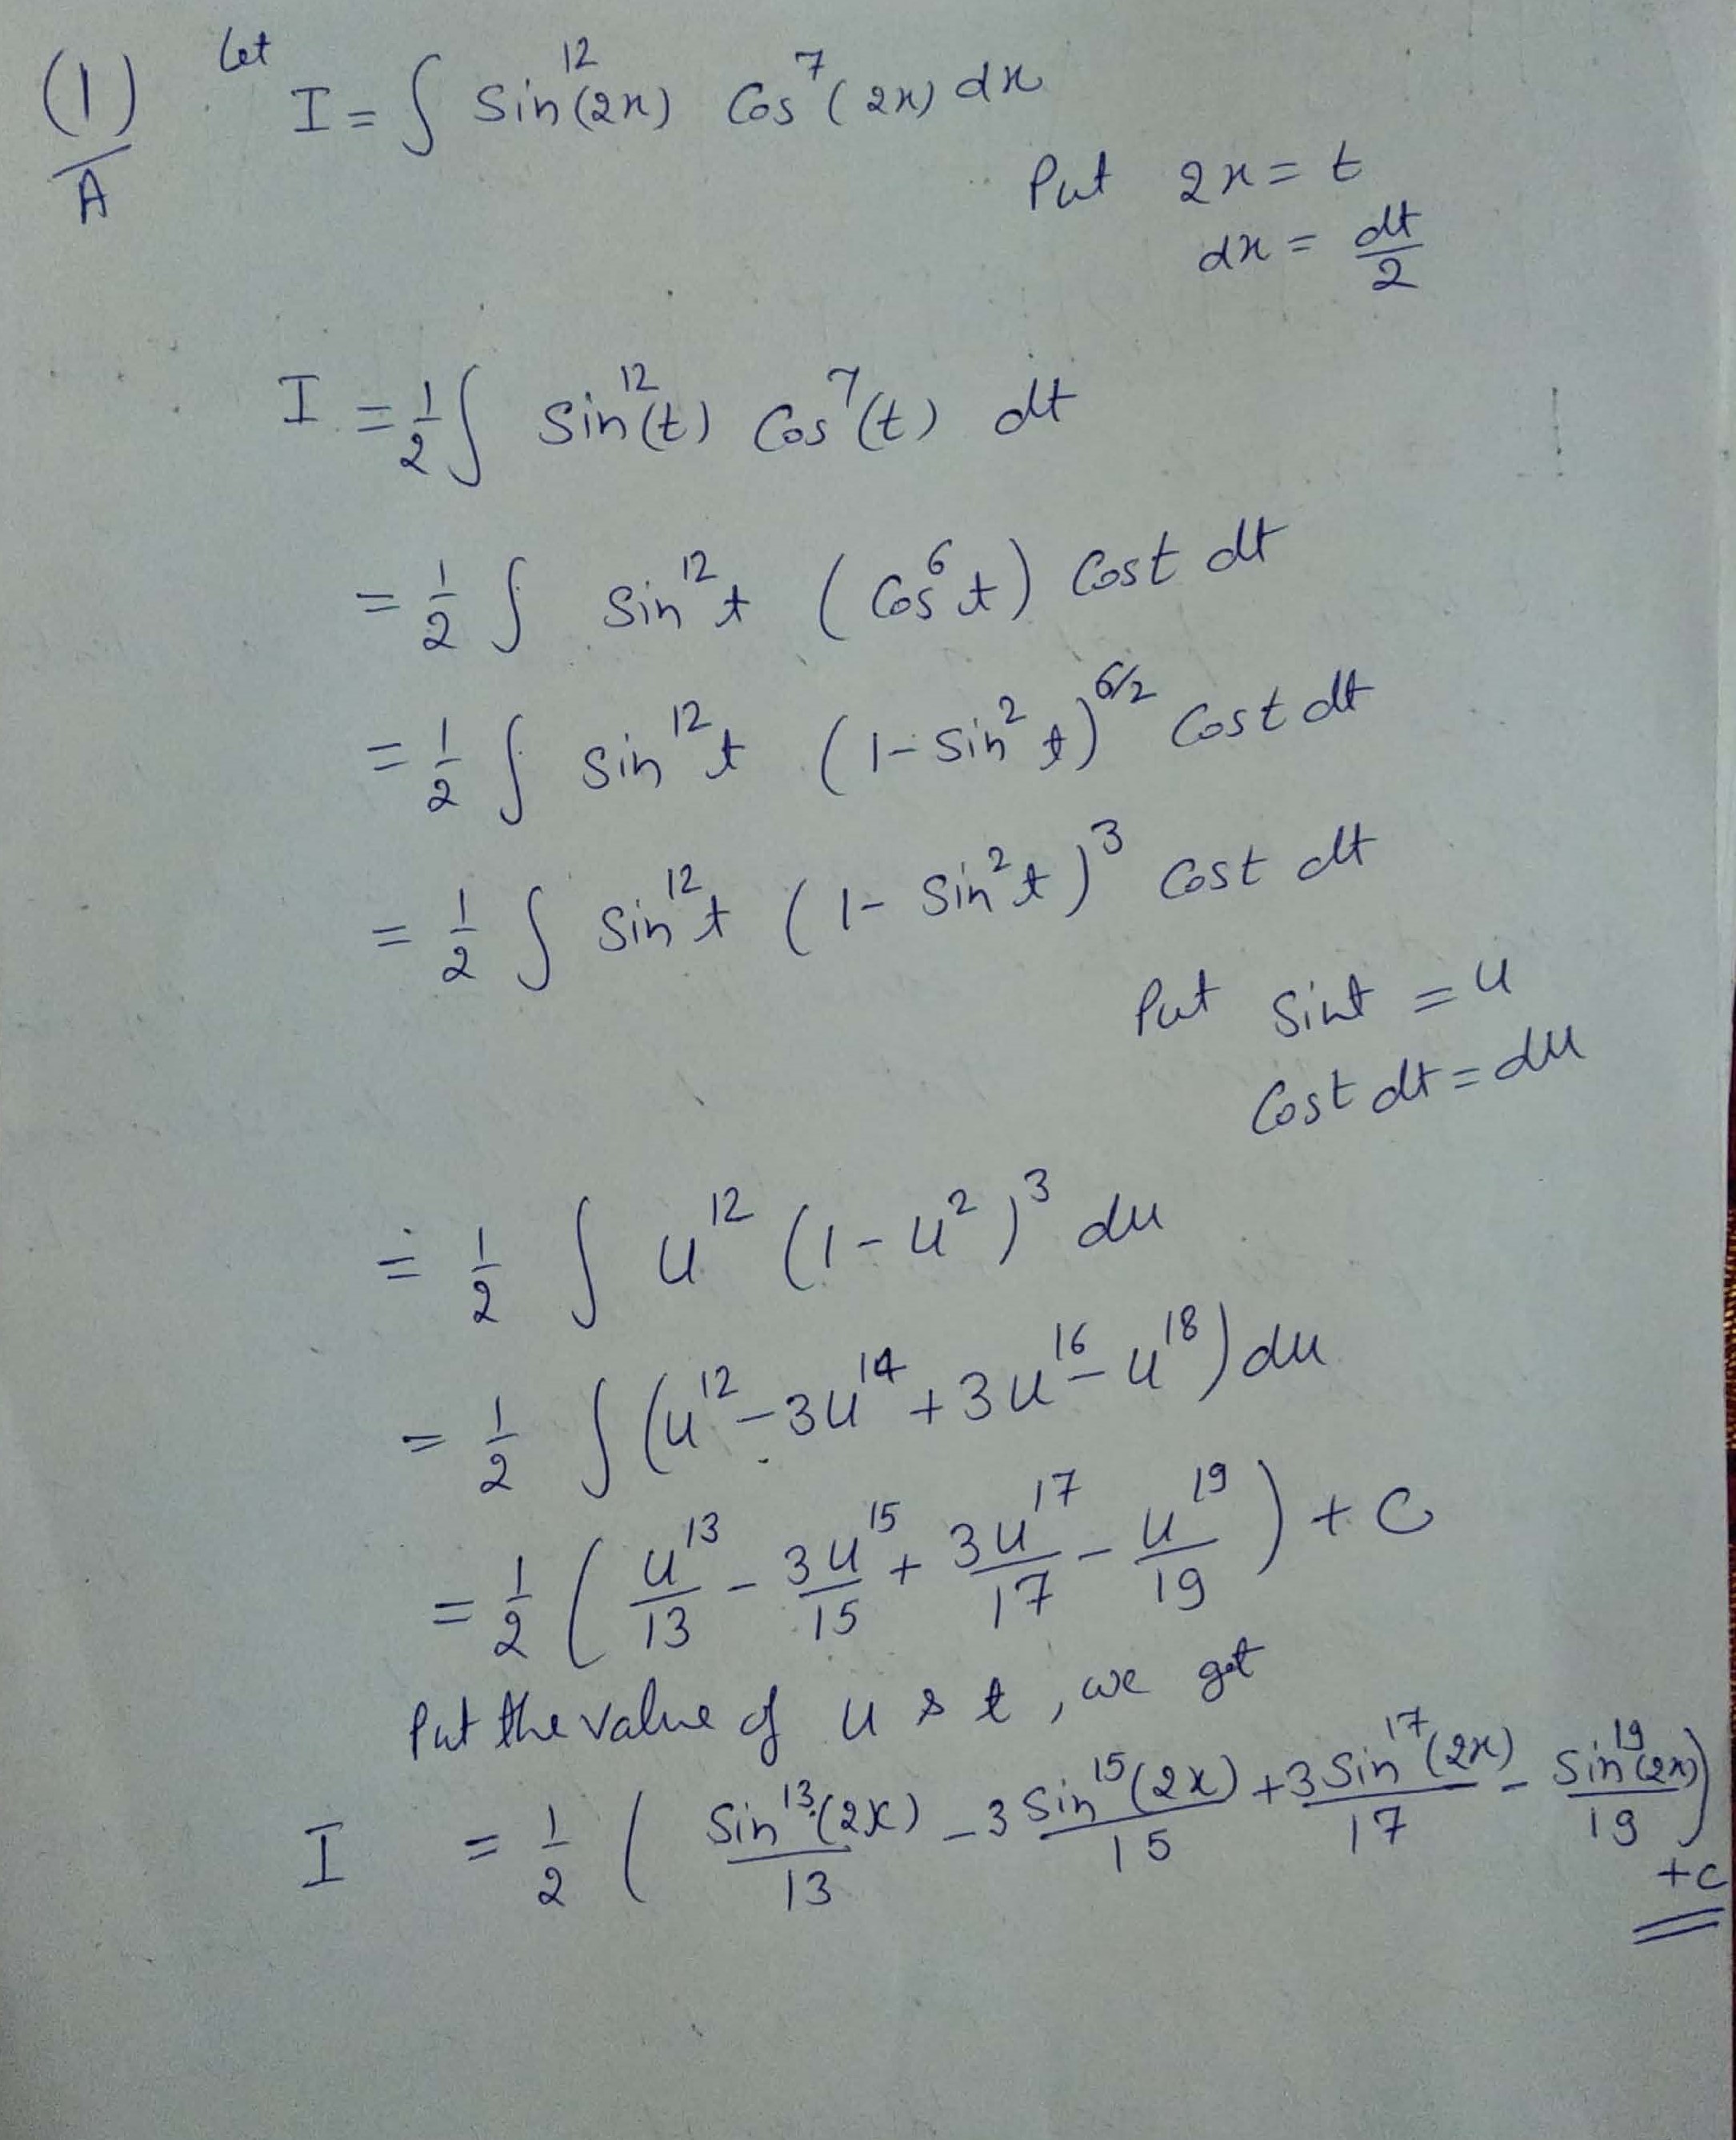 (1) Let I = ∫ Sin¹²(2x) Cos⁷(2x) dx
A
Put 2x = t
dx = dt/2
I = 1/2 ∫ Sin¹²(t) Cos⁷(t) dt
= 1/2 ∫ Sin¹²t (Cos⁶t) Cost dt
= 1/2 ∫ Sin¹²t (1-Sin²t)^6/2 Cost dt
= 1/2 ∫ Sin¹²t (1-Sin²t)³ Cost dt
Put Sint = u
Cost dt = du
= 1/2 ∫ u¹² (1-u²)³ du
= 1/2 ∫ (u¹² - 3u¹⁴ + 3u¹⁶ - u¹⁸) du
= 1/2 (u¹³/13 - 3u¹⁵/15 + 3u¹⁷/17 - u¹⁹/19) + C
Put the value of u & t, we get
I = 1/2 (Sin¹³(2x)/13 - 3Sin¹⁵(2x)/15 + 3Sin¹⁷(2x)/17 - Sin¹⁹(2x)/19)
+C